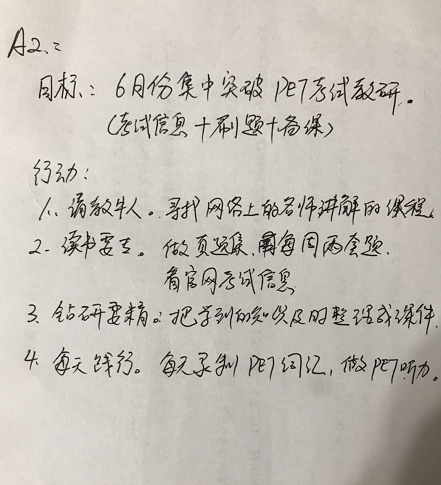 A2:
目标：6月份集中突破PET考试教研。
（考试信息+刷题+备课）
行动：
1. 请教牛人。寻找网络上的名师讲解的课程。
2. 读书要专。做真题集，每周两套题.
看官网考试信息
3. 钻研要精。把学到的知识及时整理成课件.
4. 每天践行。每天录制PET词汇，做PET听力。